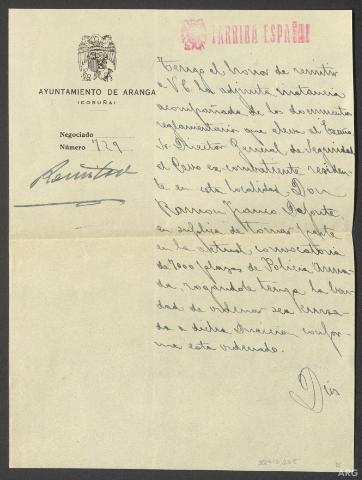 ¡ARRIBA ESPAÑA!
AYUNTAMIENTO DE ARANGA
(CORUÑA)
Negociado
Número 729
Tengo el honor de remitir
a V.E. la adjunta instancia
acompañada de la documentación
reglamentaria que eleva al Excmo
Sr Director General de Seguridad
el ex-combatiente residen-
te en esta localidad Don
Ramon Franco
en suplica de tomar parte
en la actual convocatoria
de 7000 plazas de Policia Arma-
da, rogandole tenga la bon-
dad de ordenar sea cursa-
da a dicha confor-
me esta ordenado.
Dios
ARG